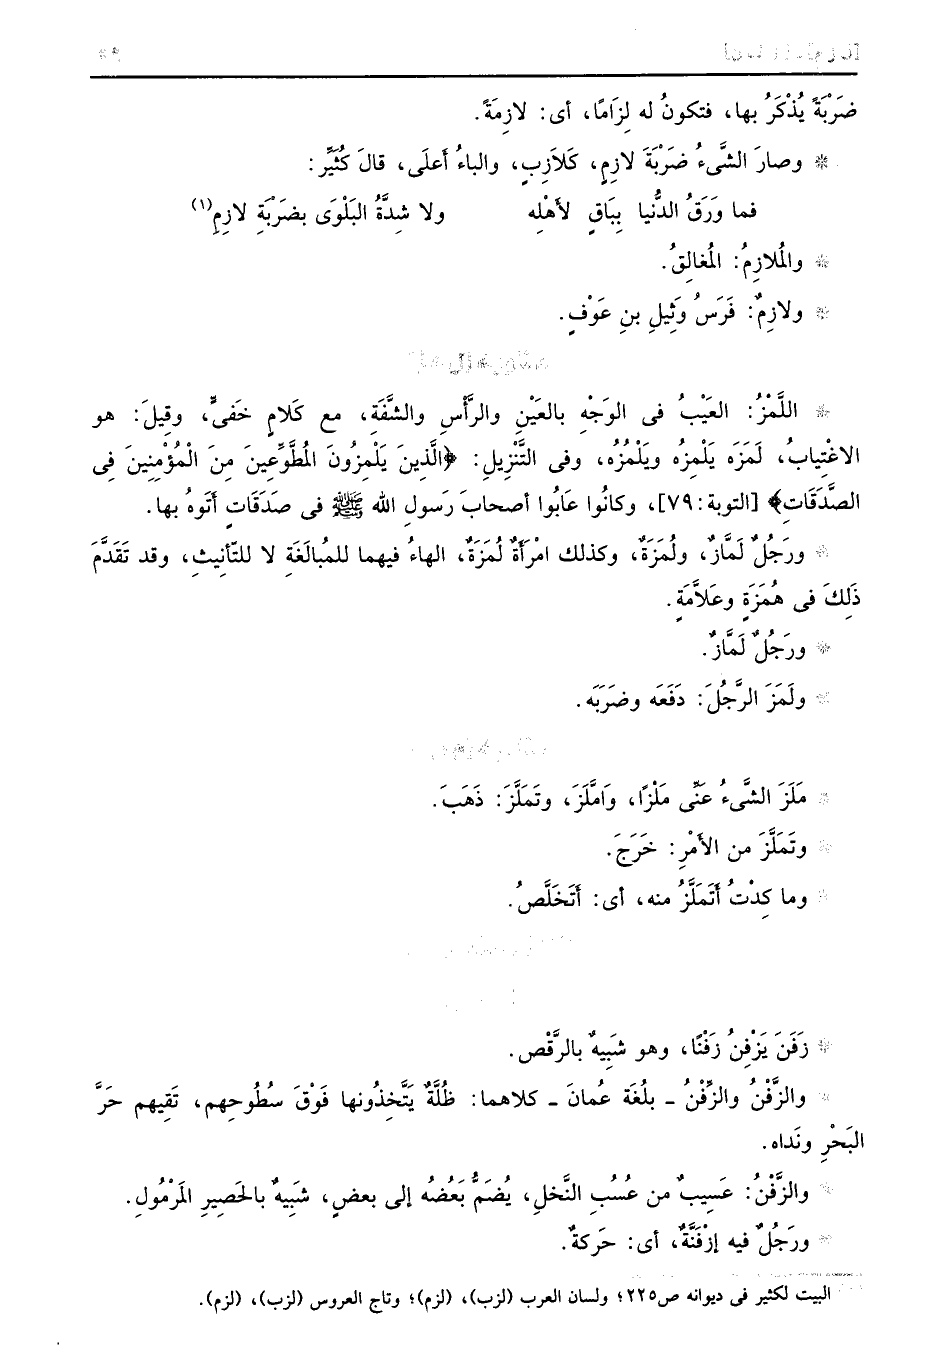 ضَرْبَةً يُذْكَرُ بها، فتكونُ له لِزَامًا، أى: لازِمَةً.
* وصارَ الشَّىءُ ضَرْبَةَ لازِمٍ، كَلاَزِبٍ، والباءُ أعلَى، قالَ كُثَيِّر:
فما وَرَقُ الدُّنيا بِبَاقٍ لأَهْلِه ولا شِدَّةُ البَلْوَى بضَرْبَةِ لازِمِ(١)
* والمُلازِمُ: المُغالِقُ.
* ولازِمٌ: فَرَسُ وَثِيلِ بنِ عَوْفٍ.
* اللَّمْزُ: العَيْبُ فى الوَجْهِ بالعَيْنِ والرَّأْسِ والشَّفَةِ، مع كَلامٍ خَفىٍّ، وقيلَ: هو
الاغْتِيابُ، لَمَزَه يَلْمِزُه ويَلْمُزُه، وفى التَّنْزِيلِ: ﴿الَّذِينَ يَلْمِزُونَ المُطَّوِّعِينَ مِنَ الْمُؤْمِنِينَ فِى
الصَّدَقَاتِ﴾ [التوبة: ٧٩]، وكانُوا عَابُوا أصحابَ رَسولِ اللهِ ﷺ فى صَدَقَاتٍ أَتَوهُ بها.
* ورَجُلٌ لَمَّازٌ، ولُمَزَةٌ، وكذلك امْرأَةٌ لُمَزَةٌ، الهاءُ فيهما للمُبالَغَةِ لا للتّأنيثِ، وقد تَقَدَّمَ
ذَلِكَ فى هُمَزَةٍ وعَلاَّمَةٍ.
* ورَجُلٌ لَمَّازٌ.
* ولَمَزَ الرَّجُلَ: دَفَعَه وضَرَبَه.
* مَلَزَ الشَّىءُ عَنِّى مَلْزًا، وَامَّلَزَ، وتَمَلَّزَ: ذَهَبَ.
* وتَمَلَّزَ من الأَمْرِ: خَرَجَ.
* وما كِدْتُ أَتَمَلَّزُ منه، أى: أَتَخَلَّصُ.
* زَفَنَ يَزْفِنُ زَفْنًا، وهو شَبِيهٌ بالرَّقْصِ.
* والزَّفْنُ والزِّفْنُ ـ بلُغَة عُمانَ ـ كلاهما: ظُلَّةٌ يَتَّخِذُونها فَوْقَ سُطُوحِهم، تَقِيهم حَرَّ
البَحْرِ ونَداه.
* والزَّفْنُ: عَسِيبٌ من عُسُبِ النَّخلِ، يُضَمُّ بَعْضُه إلى بعضٍ، شَبِيهٌ بالحَصِيرِ المَرْمُولِ.
* ورَجُلٌ فيه إزْفَنَّةٌ، أى: حَركةٌ.
البيت لكثير فى ديوانه ص٢٢٥؛ ولسان العرب (لزب)، (لزم)؛ وتاج العروس (لزب)، (لزم).